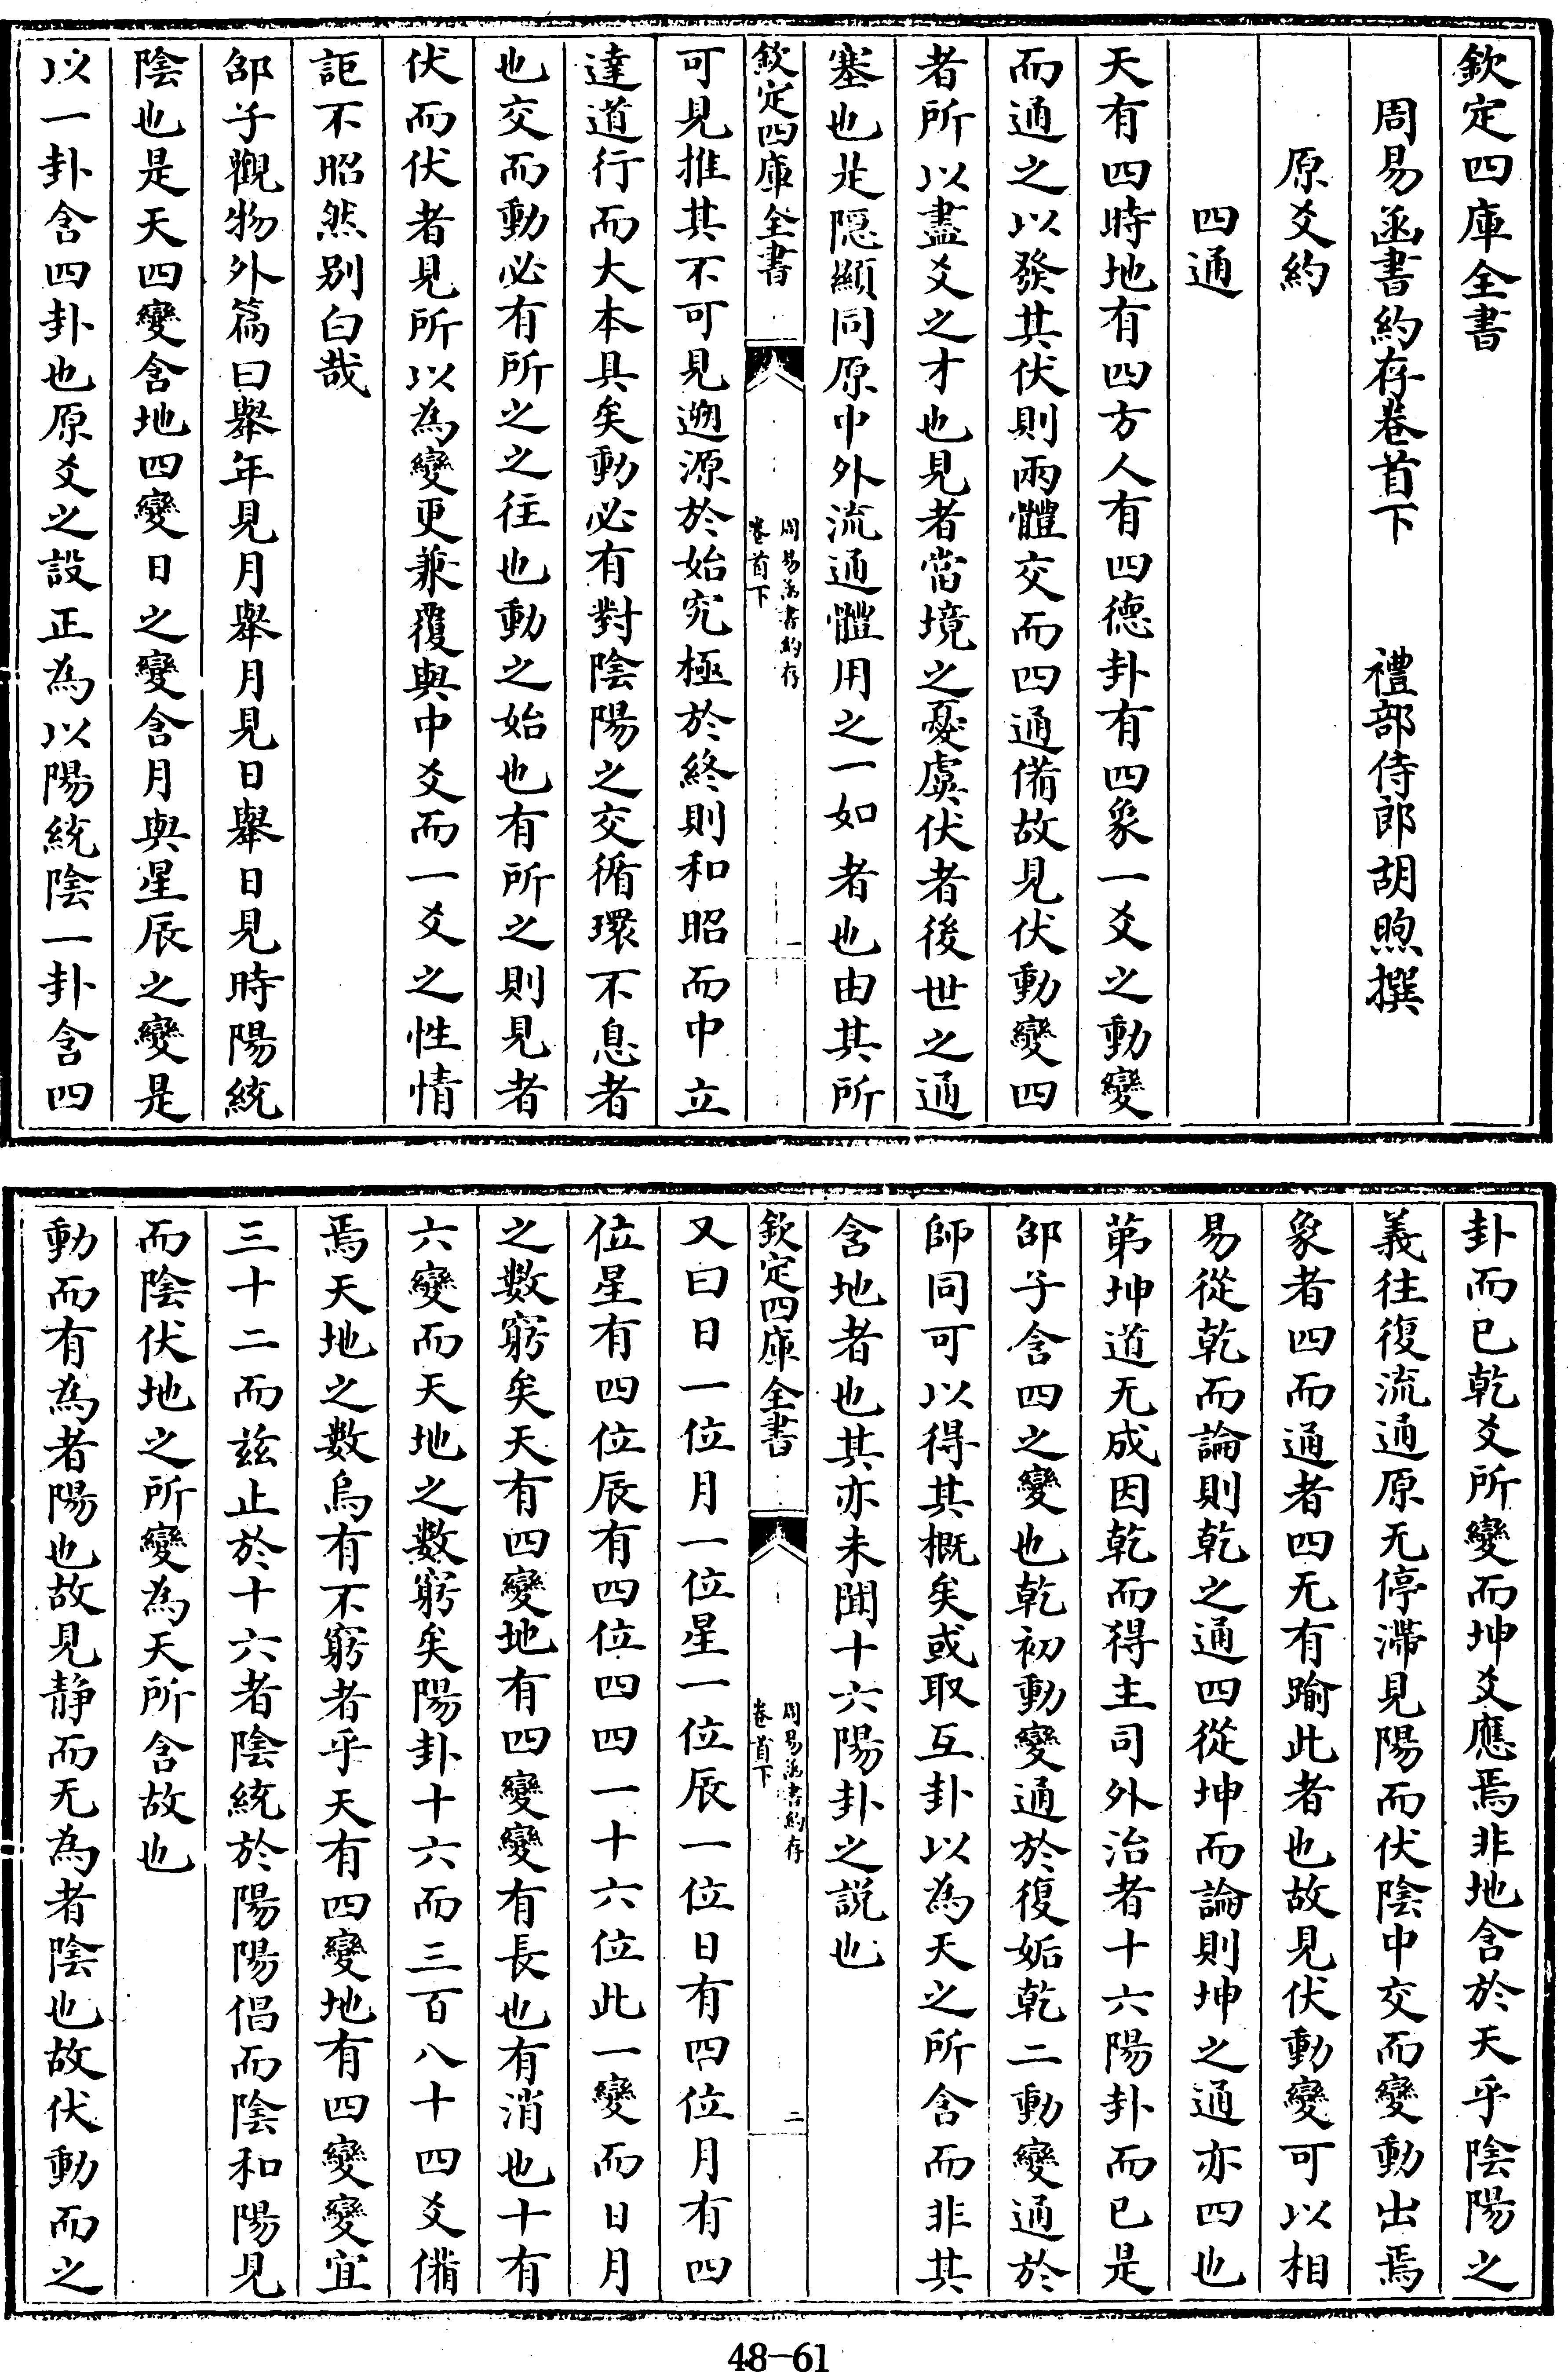 欽定四庫全書
周易函書約存卷首下　禮部侍郎胡煦撰
原爻約
四通
天有四時地有四方人有四德卦有四象一爻之動變
而通之以發其伏則兩體交而四通備故見伏動變四
者所以盡爻之才也見者當境之憂虞伏者後世之通
塞也是隱顯同原中外流通體用之一如者也由其所
欽定四庫全書
周易函書約存
卷首下
一
可見推其不可見遡源於始究極於終則和昭而中立
達道行而大本具矣動必有對陰陽之交循環不息者
也交而動必有所之之往也動之始也有所之則見者
伏而伏者見所以為變更兼覆與中爻而一爻之性情
詎不昭然別白哉
邵子觀物外篇曰舉年見月舉月見日舉日見時陽統
陰也是天四變含地四變日之變含月與星辰之變是
以一卦含四卦也原爻之設正為以陽統陰一卦含四
卦而已乾爻所變而坤爻應焉非地含於天乎陰陽之
義往復流通原无停滯見陽而伏陰中交而變動出焉
象者四而通者四无有踰此者也故見伏動變可以相
易從乾而論則乾之通四從坤而論則坤之通亦四也
第坤道无成因乾而得主司外治者十六陽卦而已是
邵子含四之變也乾初動變通於復姤乾二動變通於
師同可以得其概矣或取互卦以為天之所含而非其
含地者也其亦未聞十六陽卦之說也
欽定四庫全書
周易函書約存
卷首下
二
又曰日一位月一位星一位辰一位日有四位月有四
位星有四位辰有四位四四一十六位此一變而日月
之數窮矣天有四變地有四變變有長也有消也十有
六變而天地之數窮矣陽卦十六而三百八十四爻備
焉天地之數烏有不窮者乎天有四變地有四變變宜
三十二而茲止於十六者陰統於陽陽倡而陰和陽見
而陰伏地之所變為天所含故也
動而有為者陽也故見静而无為者陰也故伏動而之
48-61